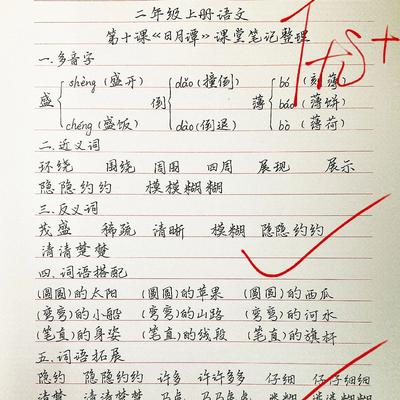 二年级上册语文
第十课《日月潭》课堂笔记整理
一.多音字
盛 shèng (盛开) chéng (盛饭) 倒 dǎo (撞倒) dào (倒退) 薄 bó (刻薄) báo (薄饼) bò (薄荷)
二.近义词
环绕 围绕 周围 四周 展现 展示
隐隐约约 模模糊糊
三.反义词
茂盛 稀疏 清晰 模糊 隐隐约约
清清楚楚
四.词语搭配
(圆圆)的太阳 (圆圆)的苹果 (圆圆)的西瓜
(弯弯)的小船 (弯弯)的山路 (弯弯)的河水
(笔直)的身姿 (笔直)的线段 (笔直)的旗杆
五.词语拓展
隐约 隐隐约约 许多 许许多多 仔细 仔仔细细